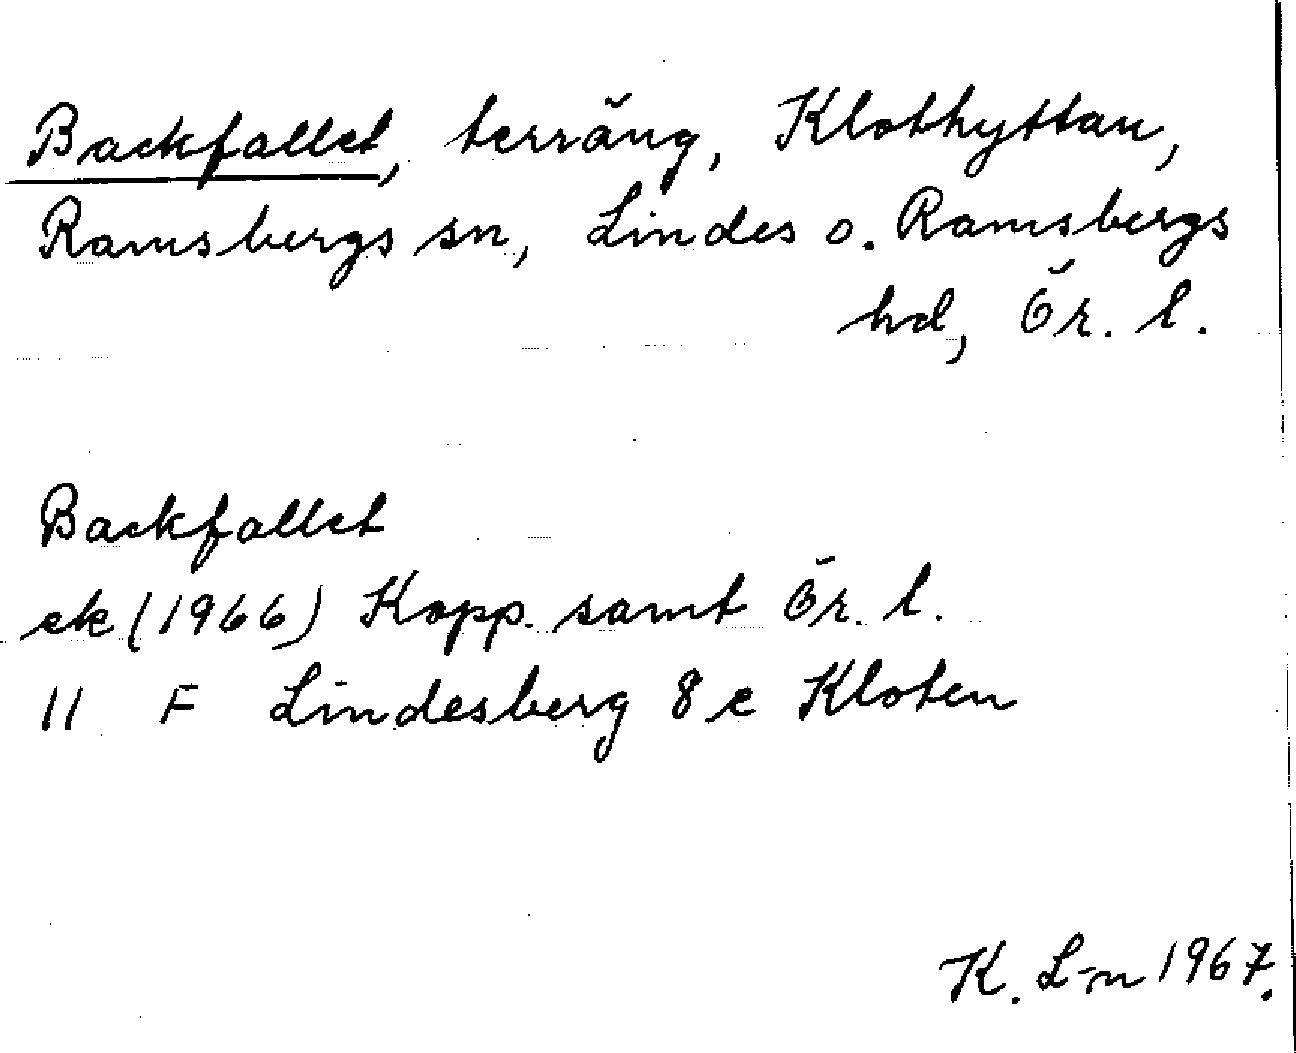 Backfallet, terräng, Klothyttan,
Ramsbergs sn, Lindes o. Ramsbergs
hd, Ör. l.
Backfallet
ek (1966) Kopp. samt Ör. l.
11 F Lindesberg 8 e Kloten
K. L-n 1967.